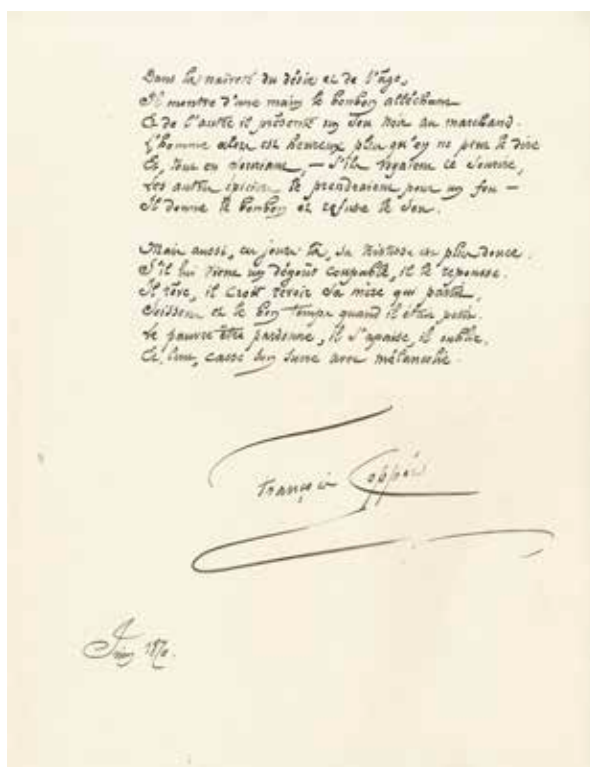 Dans la naïveté du désir et de l'âge,
Il montre d'une main le bonbon alléchant
Et de l'autre il présente un sou noir au marchand.
L'homme alors est heureux plus qu'on ne peut le dire
Et, tout en souriant, — S'ils voyaient ce sourire,
Les autres épiciers le prendraient pour un fou —
Il donne le bonbon et refuse le sou.
Mais aussi, ces jours là, sa tristesse est plus douce.
S'il lui vient un dégoût coupable, il le repousse.
Il rêve, il croit revoir sa mère qui partit,
Soissons et le bon temps quand il était petit.
Le pauvre être pardonne, il s'apaise, il oublie.
Et, lent, casse son sucre avec mélancolie.
François Coppée
Juin 1870.